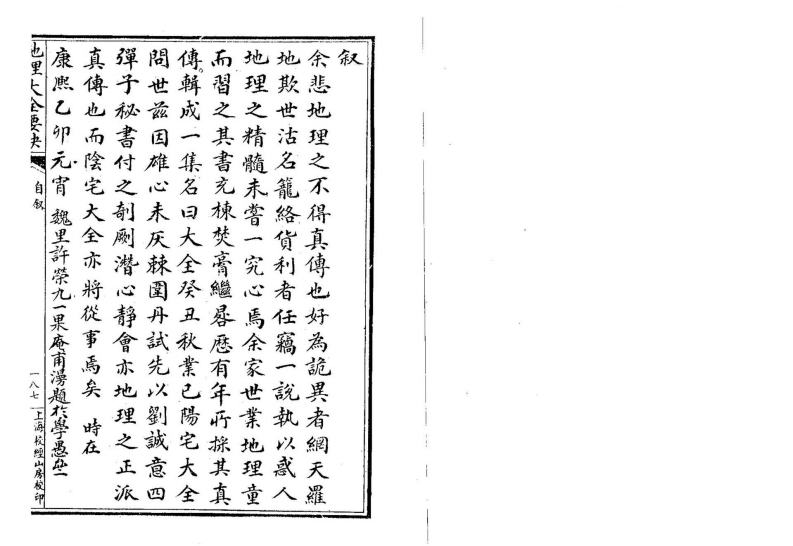 叙
余悲地理之不得真傳也好為詭異者網天羅
地欺世沽名籠絡貨利者任竊一說執以惑人
地理之精髓未嘗一究心焉余家世業地理童
而習之其書充棟焚膏繼晷歷有年所採其真
傳輯成一集名曰大全癸丑秋業已陽宅大全
問世茲因雄心未灰棘圍再試先以劉誠意四
彈子秘書付之剞劂潛心靜會亦地理之正派
真傳也而陰宅大全亦將從事焉矣 時在
康熙乙卯元宵 魏里許榮九一果庵甫漫題於學愚
地理大全要訣 自叙 一八七 上海校經山房校印